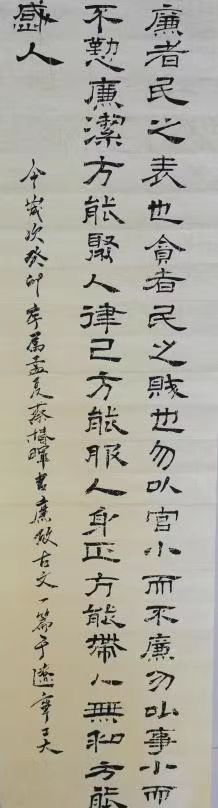 廉者民之表也貪者民之賊也勿以官小而不廉勿以事小而
不懃廉潔方能聚人律己方能服人身正方能帶人無私方能
感人
今歲次癸卯季属孟夏蔡暉書廉政古文一篇于遼寧